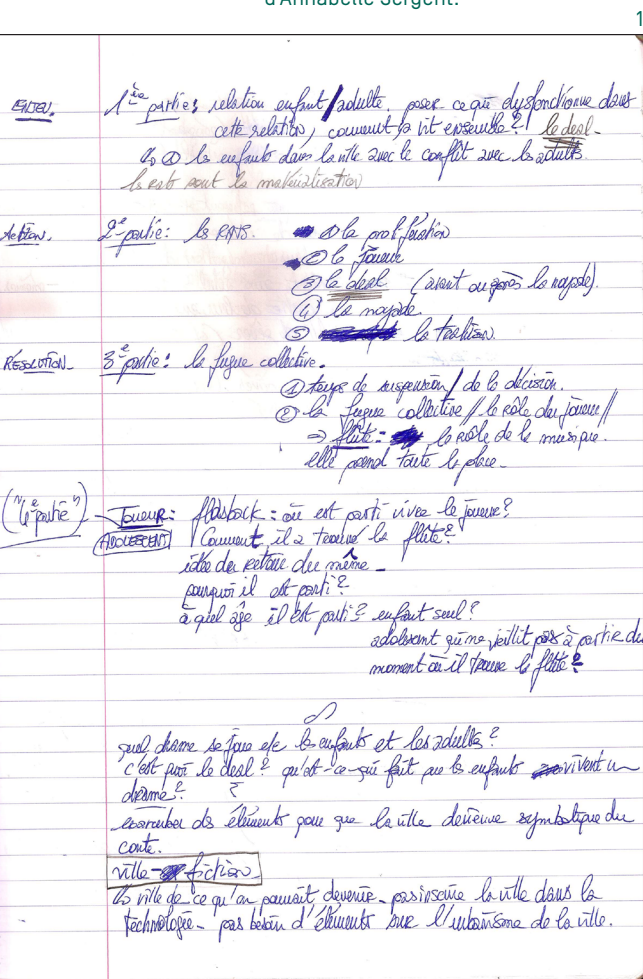 d'Annabelle Sergent.
1
ENJEU. 1ère partie : relation enfant/adulte. poser ce qui dysfonctionne dans
cette relation, comment ça vit ensemble ? le deal -
↳ ① les enfants dans la ville avec le conflit avec les adultes.
les rats sont la matérialisation
Action. 2e partie : les RATS. ① la prolifération
② le joueur
③ le deal (avant ou après la noyade).
④ la noyade.
⑤ la trahison.
RÉSOLUTION - 3e partie : la fugue collective.
① temps de suspension / de la décision.
② la fugue collective // le rôle du joueur //
⇒ flûte = le rôle de la musique.
elle prend toute la place -
("4e partie") - JOUEUR : flasback : où est parti vivre le joueur ?
(ADOLESCENT) Comment il a trouvé la flûte ?
idée du retour du même -
pourquoi il est parti ?
à quel âge il est parti ? enfant seul ?
adolescent qui ne vieillit pas à partir du
moment où il trouve la flûte ?
quel drame se joue les enfants et les adultes ?
c'est quoi le deal ? qu'est-ce qui fait que les enfants vivent un
drame ?
des éléments pour que la ville devienne symbolique du
conte.
ville - fiction -
↳ ville de ce qu'on pourrait devenir - pas inscrire la ville dans la
technologie - pas besoin d'éléments sur l'urbanisme de la ville.